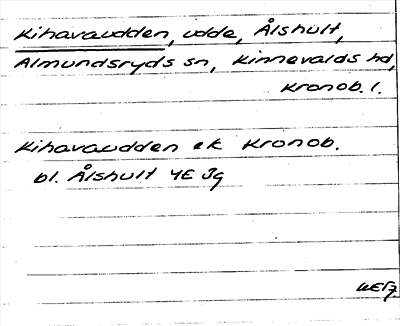 Kihavaudden, udde, Ålshult,
Almundsryds sn, Kinnevalds hd,
Kronob. l.
Kihavaudden ek Kronob.
bl. Ålshult 4E 3g